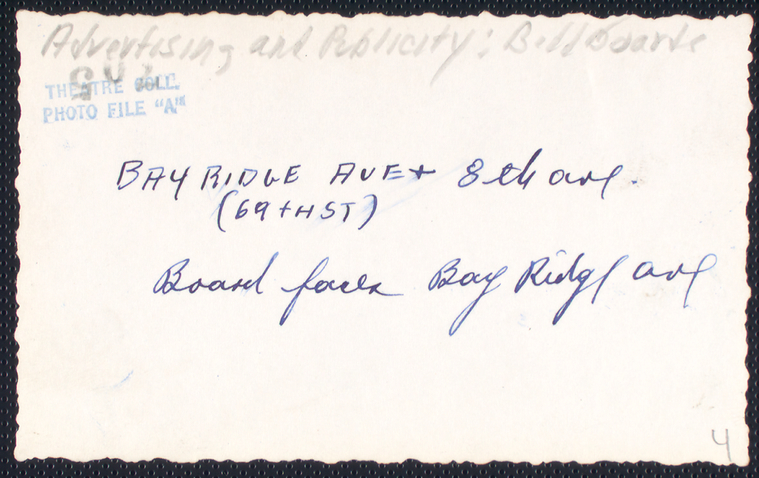 Advertising and Publicity: Billboards
THEATRE COLL.
PHOTO FILE "A"
BAY RIDGE AVE + 8th ave.
(69THST)
Board faces Bay Ridge ave
4